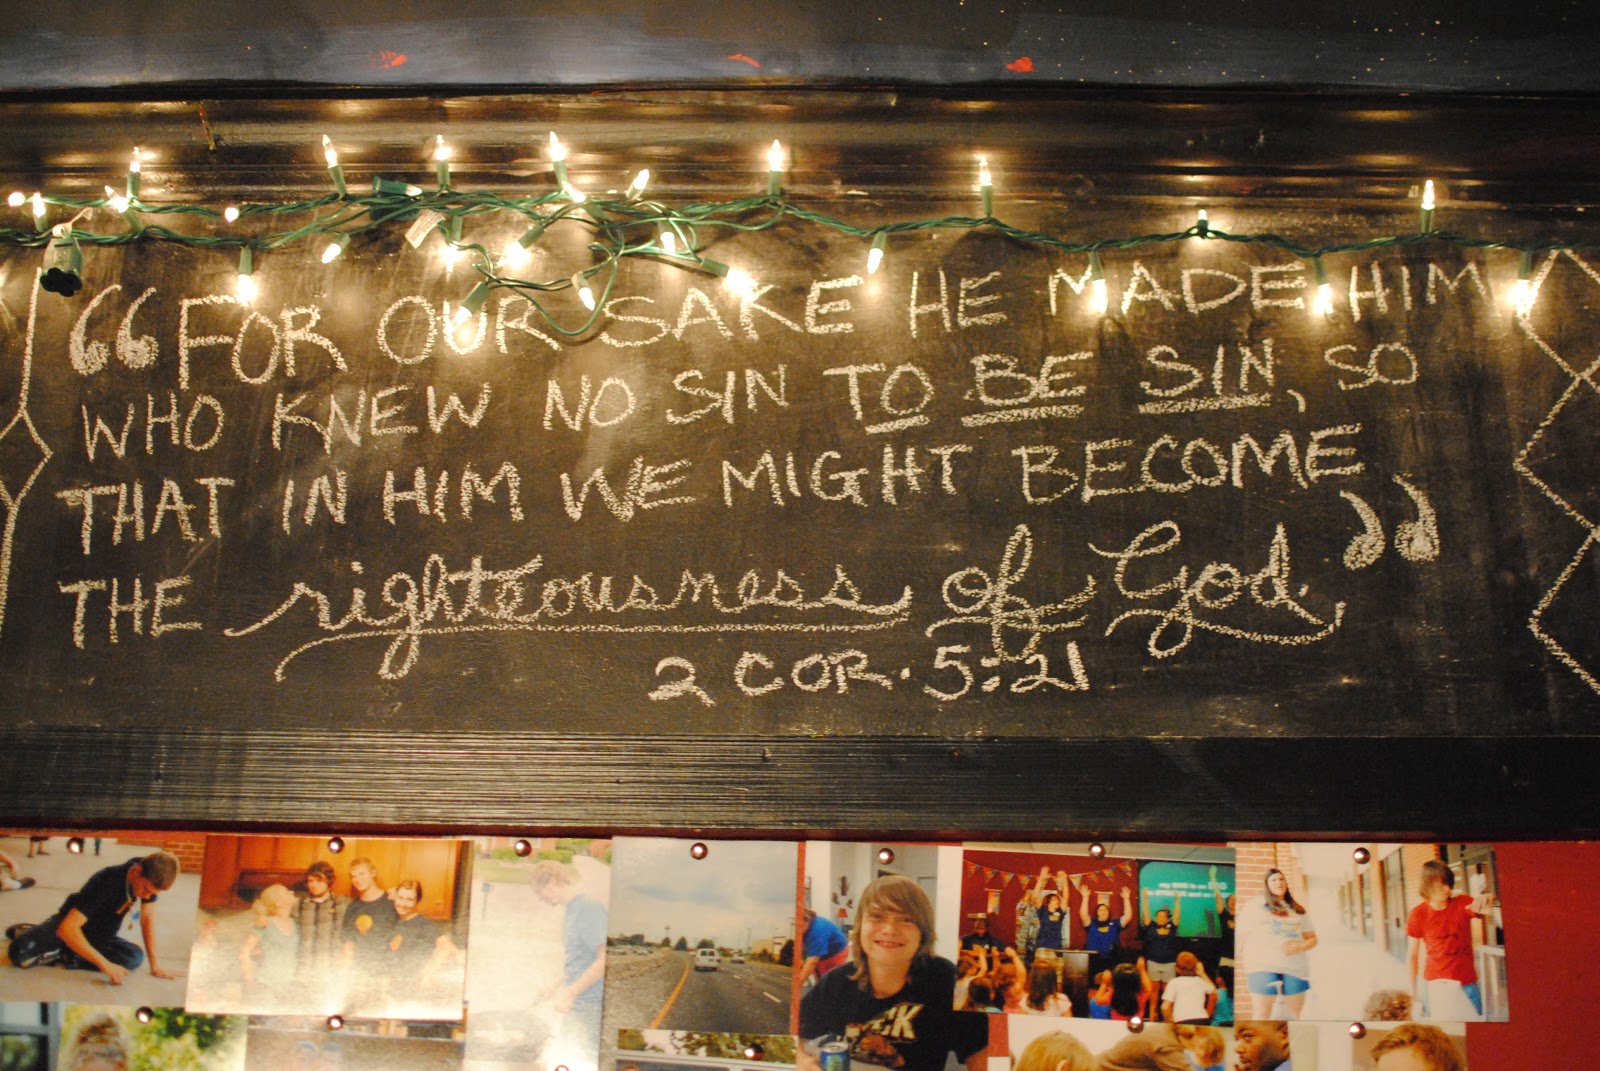 “FOR OUR SAKE HE MADE HIM
WHO KNEW NO SIN TO BE SIN, SO
THAT IN HIM WE MIGHT BECOME
THE righteousness of God.”
2 COR. 5:21